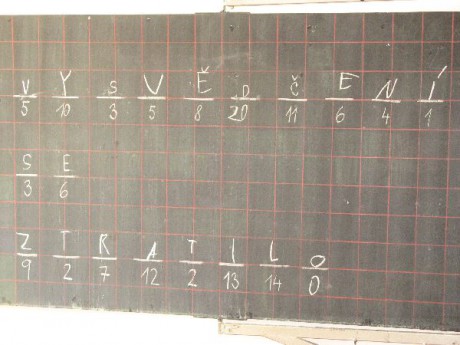 V Y S V Ě D Č E N Í
5 10 3 5 8 20 11 6 4 1
S E
3 6
Z T R A T I L O
9 2 7 12 2 13 14 0